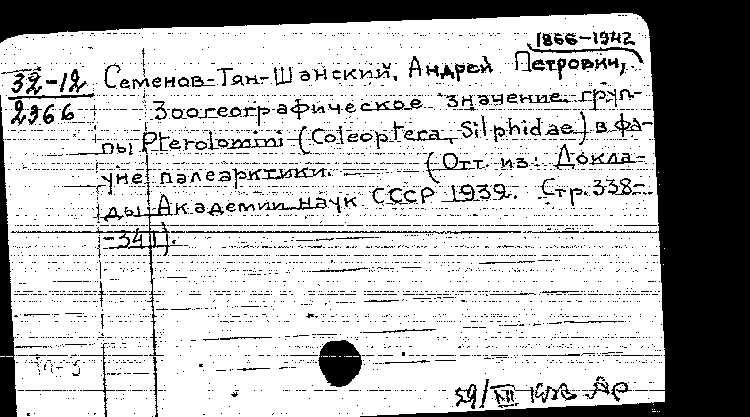 1866-1942
32-12
2366
Семенов-Тян-Шанский, Андрей Петрович,
Зоогеографическое значение груп-
пы Pterolomini (Coleoptera, Silphidae) в фа-
уне палеарктики. (Отт. из: Докла-
ды Академии наук СССР 1932. Стр. 338-
-341).
29/XII